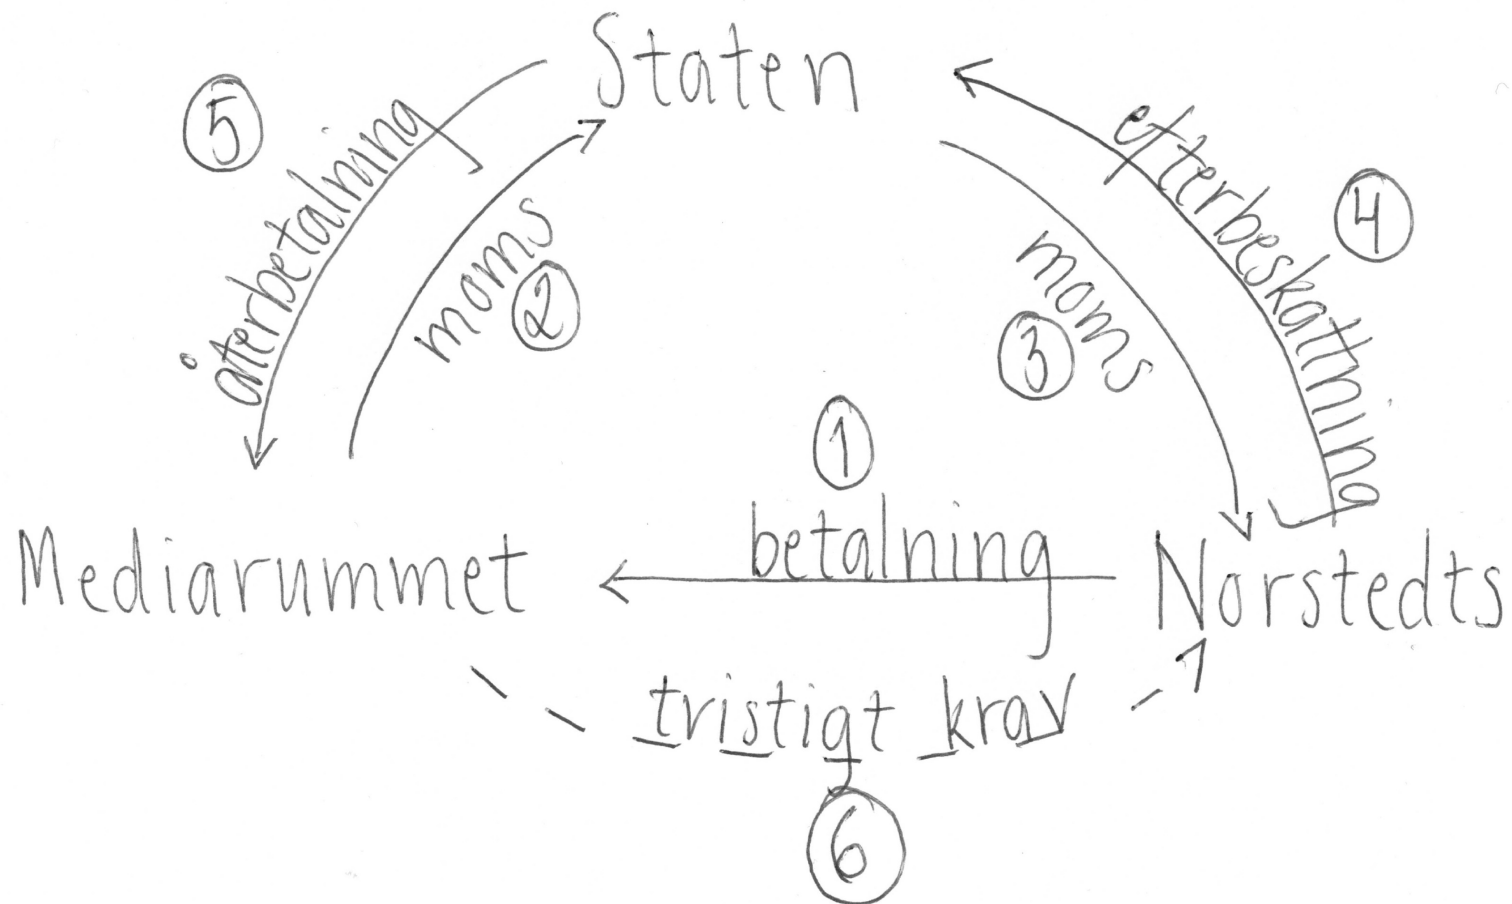 Staten
5
återbetalning
moms
2
efterbeskattning
4
moms
3
1
betalning
Mediarummet
Norstedts
tristigt krav
6